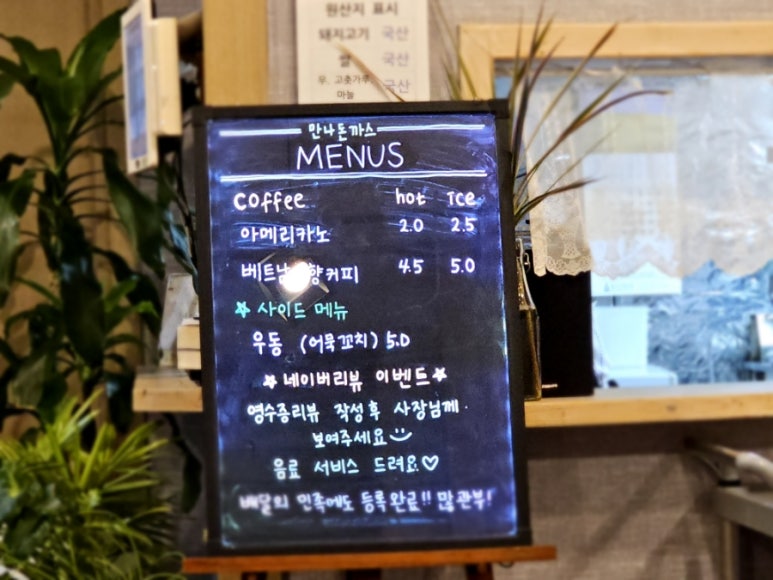 원산지 표시
돼지고기 국산
쌀 국산
우, 고춧가루, 마늘 국산
만나돈까스
MENUS
Coffee hot Ice
아메리카노 2.0 2.5
향커피 4.5 5.0
사이드 메뉴
우동 (어묵꼬치) 5.0
네이버리뷰 이벤트
영수증리뷰 작성후 사장님께
보여주세요
음료 서비스 드려요♡
배달의 민족에도 등록완료!! 많관부!